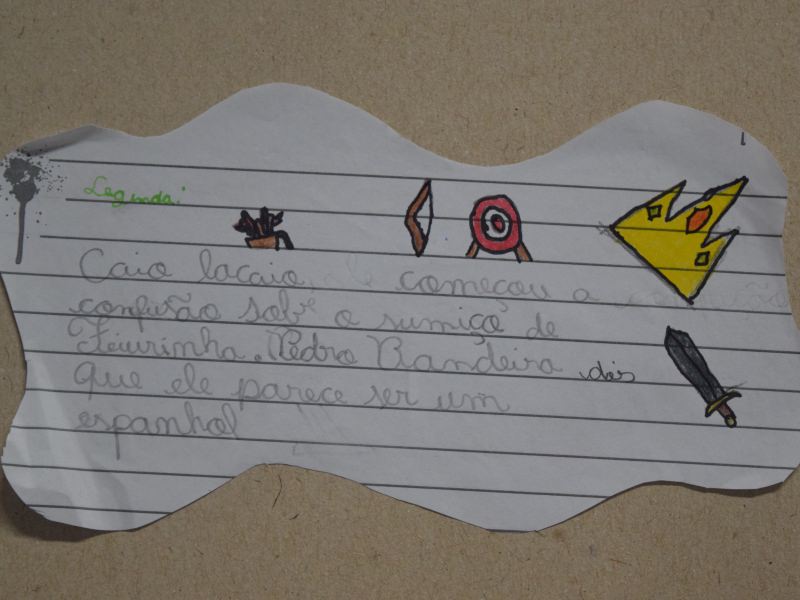 Legenda:
Caio lacaio, ele começou a
confusão sobre o sumiço de
Feiurinha. Pedro Bandeira dis
que ele parece ser um
espanhol